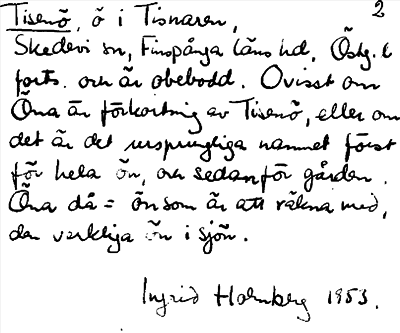 Tisenö, ö i Tisnaren, 2
Skedevi sn, Finspånga läns hd, Östg. l
forts. och är obebodd. Ovisst om
Öna är förkortning av Tisenö, eller om
det är det ursprungliga namnet först
för hela ön, och sedan för gården.
Öna då = ön som är att räkna med,
den verkliga ön i sjön.
Ingrid Holmberg 1953.